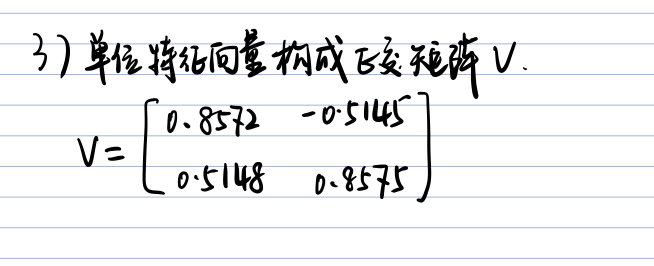 3) 单位特征向量构成正交矩阵 V.
V = [ 0.8572 -0.5145
0.5148 0.8575 ]